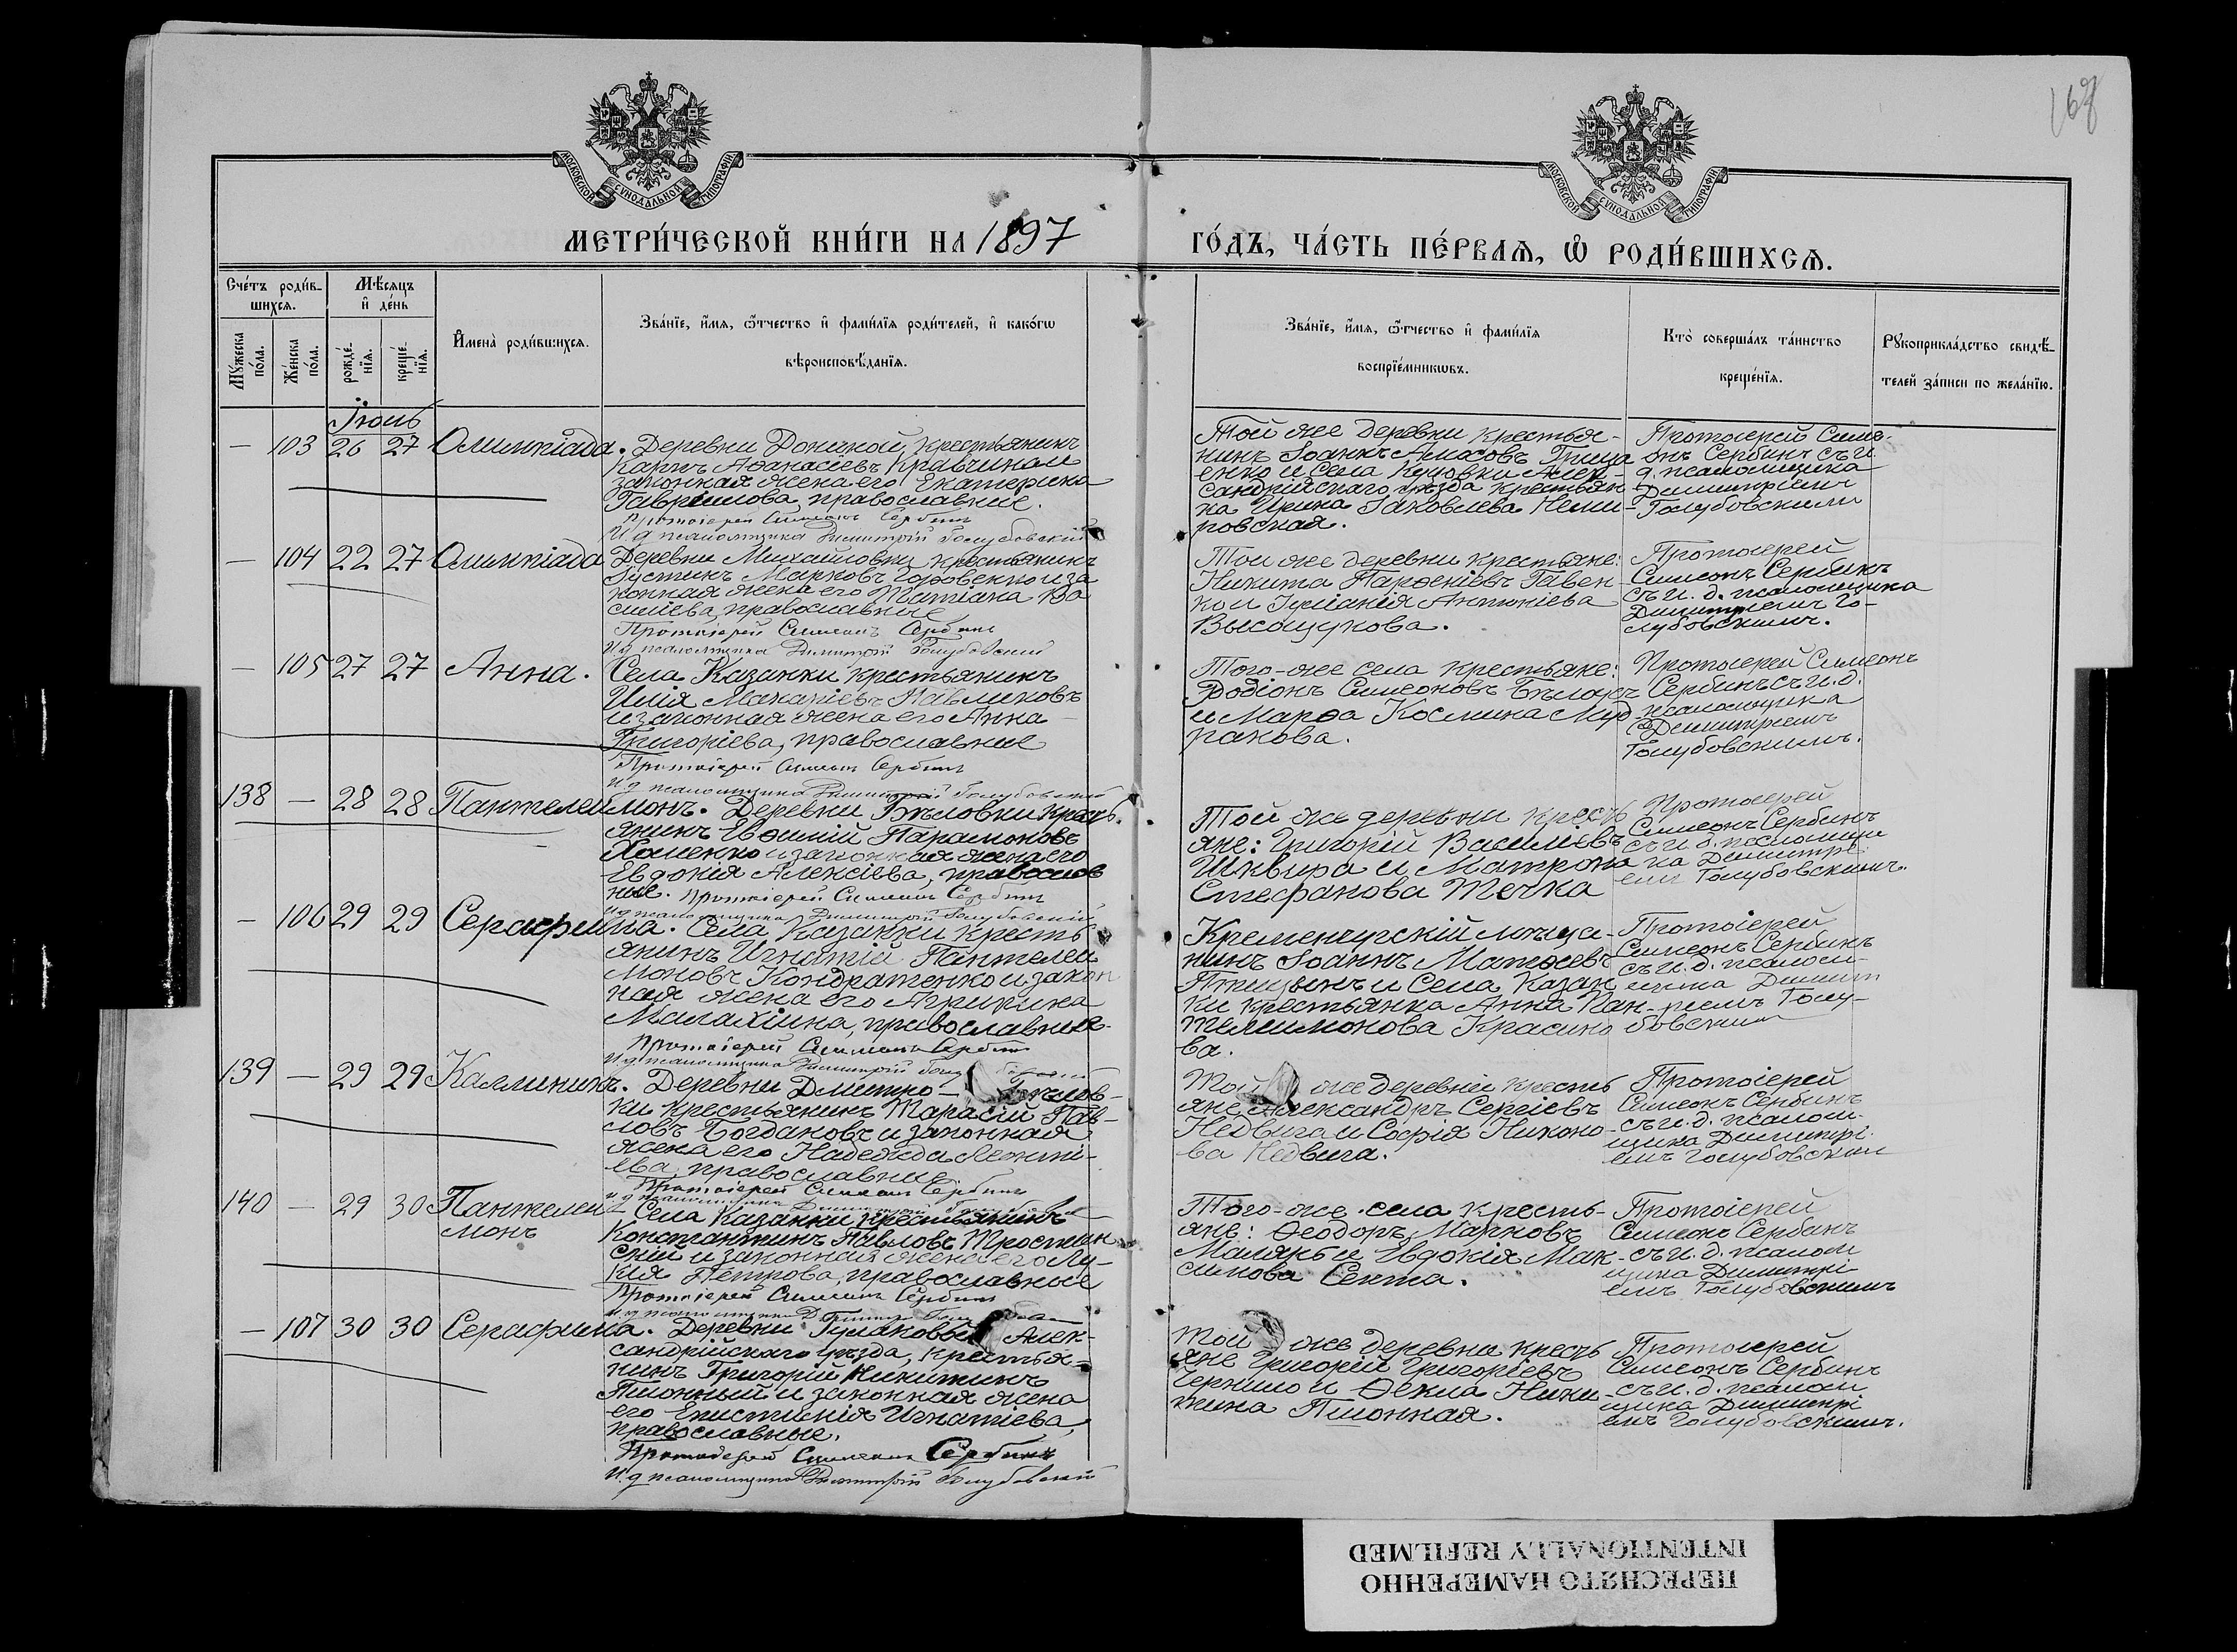 167
МОСКОВСКОЙ СѴНОДАЛЬНОЙ ТИПОГРАФІИ
МОСКОВСКОЙ СѴНОДАЛЬНОЙ ТИПОГРАФІИ
МЕТРИ́ЧЕСКОЙ КНИ́ГИ НА 1897
ГО́ДЪ, ЧА́СТЬ ПЕ́РВАѦ, Ѡ҆ РОДИ́ВШИХСѦ.
Сче́тъ роди́в-
шихсѧ.
Мꙋ́жеска
по́ла.
Же́нска
по́ла.
Мѣ́сѧцъ
и҆ де́нь
рожде́-
нїѧ.
креще́-
нїѧ.
И҆мена̀ роди́вшихсѧ.
Зва́нїе, и҆́мѧ, ѻ҆́тчество и҆ фами́лїѧ роди́телей, и҆ како́гѡ
вѣроисповѣ́данїѧ.
Зва́нїе, и҆́мѧ, ѻ҆́тчество и҆ фами́лїѧ
воспрїе́мникѡвъ.
Кто̀ соверша́лъ та́инство
креще́нїѧ.
Рꙋкоприкла́дство свидѣ́-
телей за́писи по жела́нїю.
Іюль
— 103 26 27 Олимпіада.
Деревни Дониной, крестьянинъ
Карпъ Аѳанасіевъ Кравчина и
законная жена его Екатерина
Гаврилова, православные.
Протоіерей Симеонъ Сербинъ
И. д. псаломщика Димитрій Голубовскій
Той же деревни крестья-
нинъ Іоаннъ Амосовъ Грица
енко и села Куцовки Алек-
сандрійскаго уѣзда крестьян-
ка Ирина Іаковлева Неми-
ровская.
Протоіерей Симе-
онъ Сербинъ съ и.
д. псаломщика
Димитріемъ
Голубовскимъ
— 104 22 27 Олимпіада
Деревни Михайловки крестьянинъ
Іустинъ Марковъ Горовенко и за
конная жена его Татіана Ва
силіева, православные
Протоіерей Симеонъ Сербинъ
И. д. псаломщика Димитрій Голубовскій
Той же деревни крестьяне:
Никита Парѳеніевъ Гавен
ко и Іуліанія Антоніева
Высоцукова.
Протоіерей
Симеонъ Сербинъ
съ и. д. псаломщика
Димитріемъ Го-
лубовскимъ.
— 105 27 27 Анна.
Села Казанки крестьянинъ
Илія Макаріевъ Павликовъ
и законная жена его Анна
Григоріева, православные
Протоіерей Симеонъ Сербинъ
И. д. псаломщика Димитрій Голубовскій
Того-же села крестьяне:
Родіонъ Симеоновъ Бѣларъ
и Марѳа Космина Муд
ракова.
Протоіерей Симеонъ
Сербинъ съ и. д.
псаломщика
Димитріемъ
Голубовскимъ.
138 — 28 28 Пантелеимонъ.
Деревни Бѣловки крест.
янинъ Евѳимій Парамоновъ
Хоменко и законная жена его
Евдокія Алексіева, православ
ные. Протоіерей Симеонъ Сербинъ
И. д. псаломщика Димитрій Голубовскій
Той же деревни кресть
яне: Григорій Василіевъ
Шквира и Матрона
Стефанова Течка
Протоіерей
Симеонъ Сербинъ
съ и. д. псаломщи
ка Димитрі
емъ Голубовскимъ.
— 106 29 29 Серафима.
Села Казанки кресть
янинъ Игнатій Пантелеи
моновъ Кондратенко и закон
ная жена его Агрипина
Малахіина, православные.
Протоіерей Симеонъ Сербинъ
И. д. псаломщика Димитрій
Кременчугскій мѣща-
нинъ Іоаннъ Матѳеевъ
Птицынъ и села Казан
ки крестьянка Анна Пан-
телеимонова Красино
ва.
Протоіерей
Симеонъ Сербинъ
съ и. д. псалом-
щика Димит
ріемъ Голу-
бовскимъ
139 — 29 29 Каллиникъ.
Деревни Дмитро- Бѣлов-
ки крестьянинъ Тарасій Пав-
ловъ Богдановъ и законная
жена его Надежда Леонті-
ева, православные
Протоіерей Симеонъ Сербинъ
И. д. псаломщика Димитрій
Той же деревни кресть
яне Александръ Сергіевъ
Недвига и Софія Никоно-
ва Недвига.
Протоіерей
Симеонъ Сербинъ
съ и. д. псалом-
щика Димитрі-
емъ Голубовским
140 — 29 30 Пантелеи-
монъ
Села Казанки крестьянинъ
Константинъ Павловъ Тростян
скій и законная жена его Лу-
кія Петрова, православные
Протоіерей Симеонъ Сербинъ
Того-же села кресть-
яне: Ѳеодоръ Марковъ
Маляръ и Евдокія Мак-
симова Секта.
Протоіерей
Симеонъ Сербинъ
съ и. д. псалом
щика Димитрі
емъ Голубовскимъ
— 107 30 30 Серафима.
Деревни Гулаковы Алек-
сандрійскаго уѣзда, крестья-
нинъ Григорій Никитинъ
Піонный и законная жена
его Епистимія Игнатіева,
православные.
Протоіерей Симеонъ Сербинъ
И. д. псаломщика Димитрій Голубовскій
Той же деревни кресть
яне Григорій Григоріевъ
Чернило и Ѳекла Ники-
тина Піонная.
Протоіерей
Симеонъ Сербинъ
съ и. д. псалом
щика Димитрі
емъ Голубовскимъ.
ПЕРЕСНЯТО НАМЕРЕННО
INTENTIONALLY REFILMED